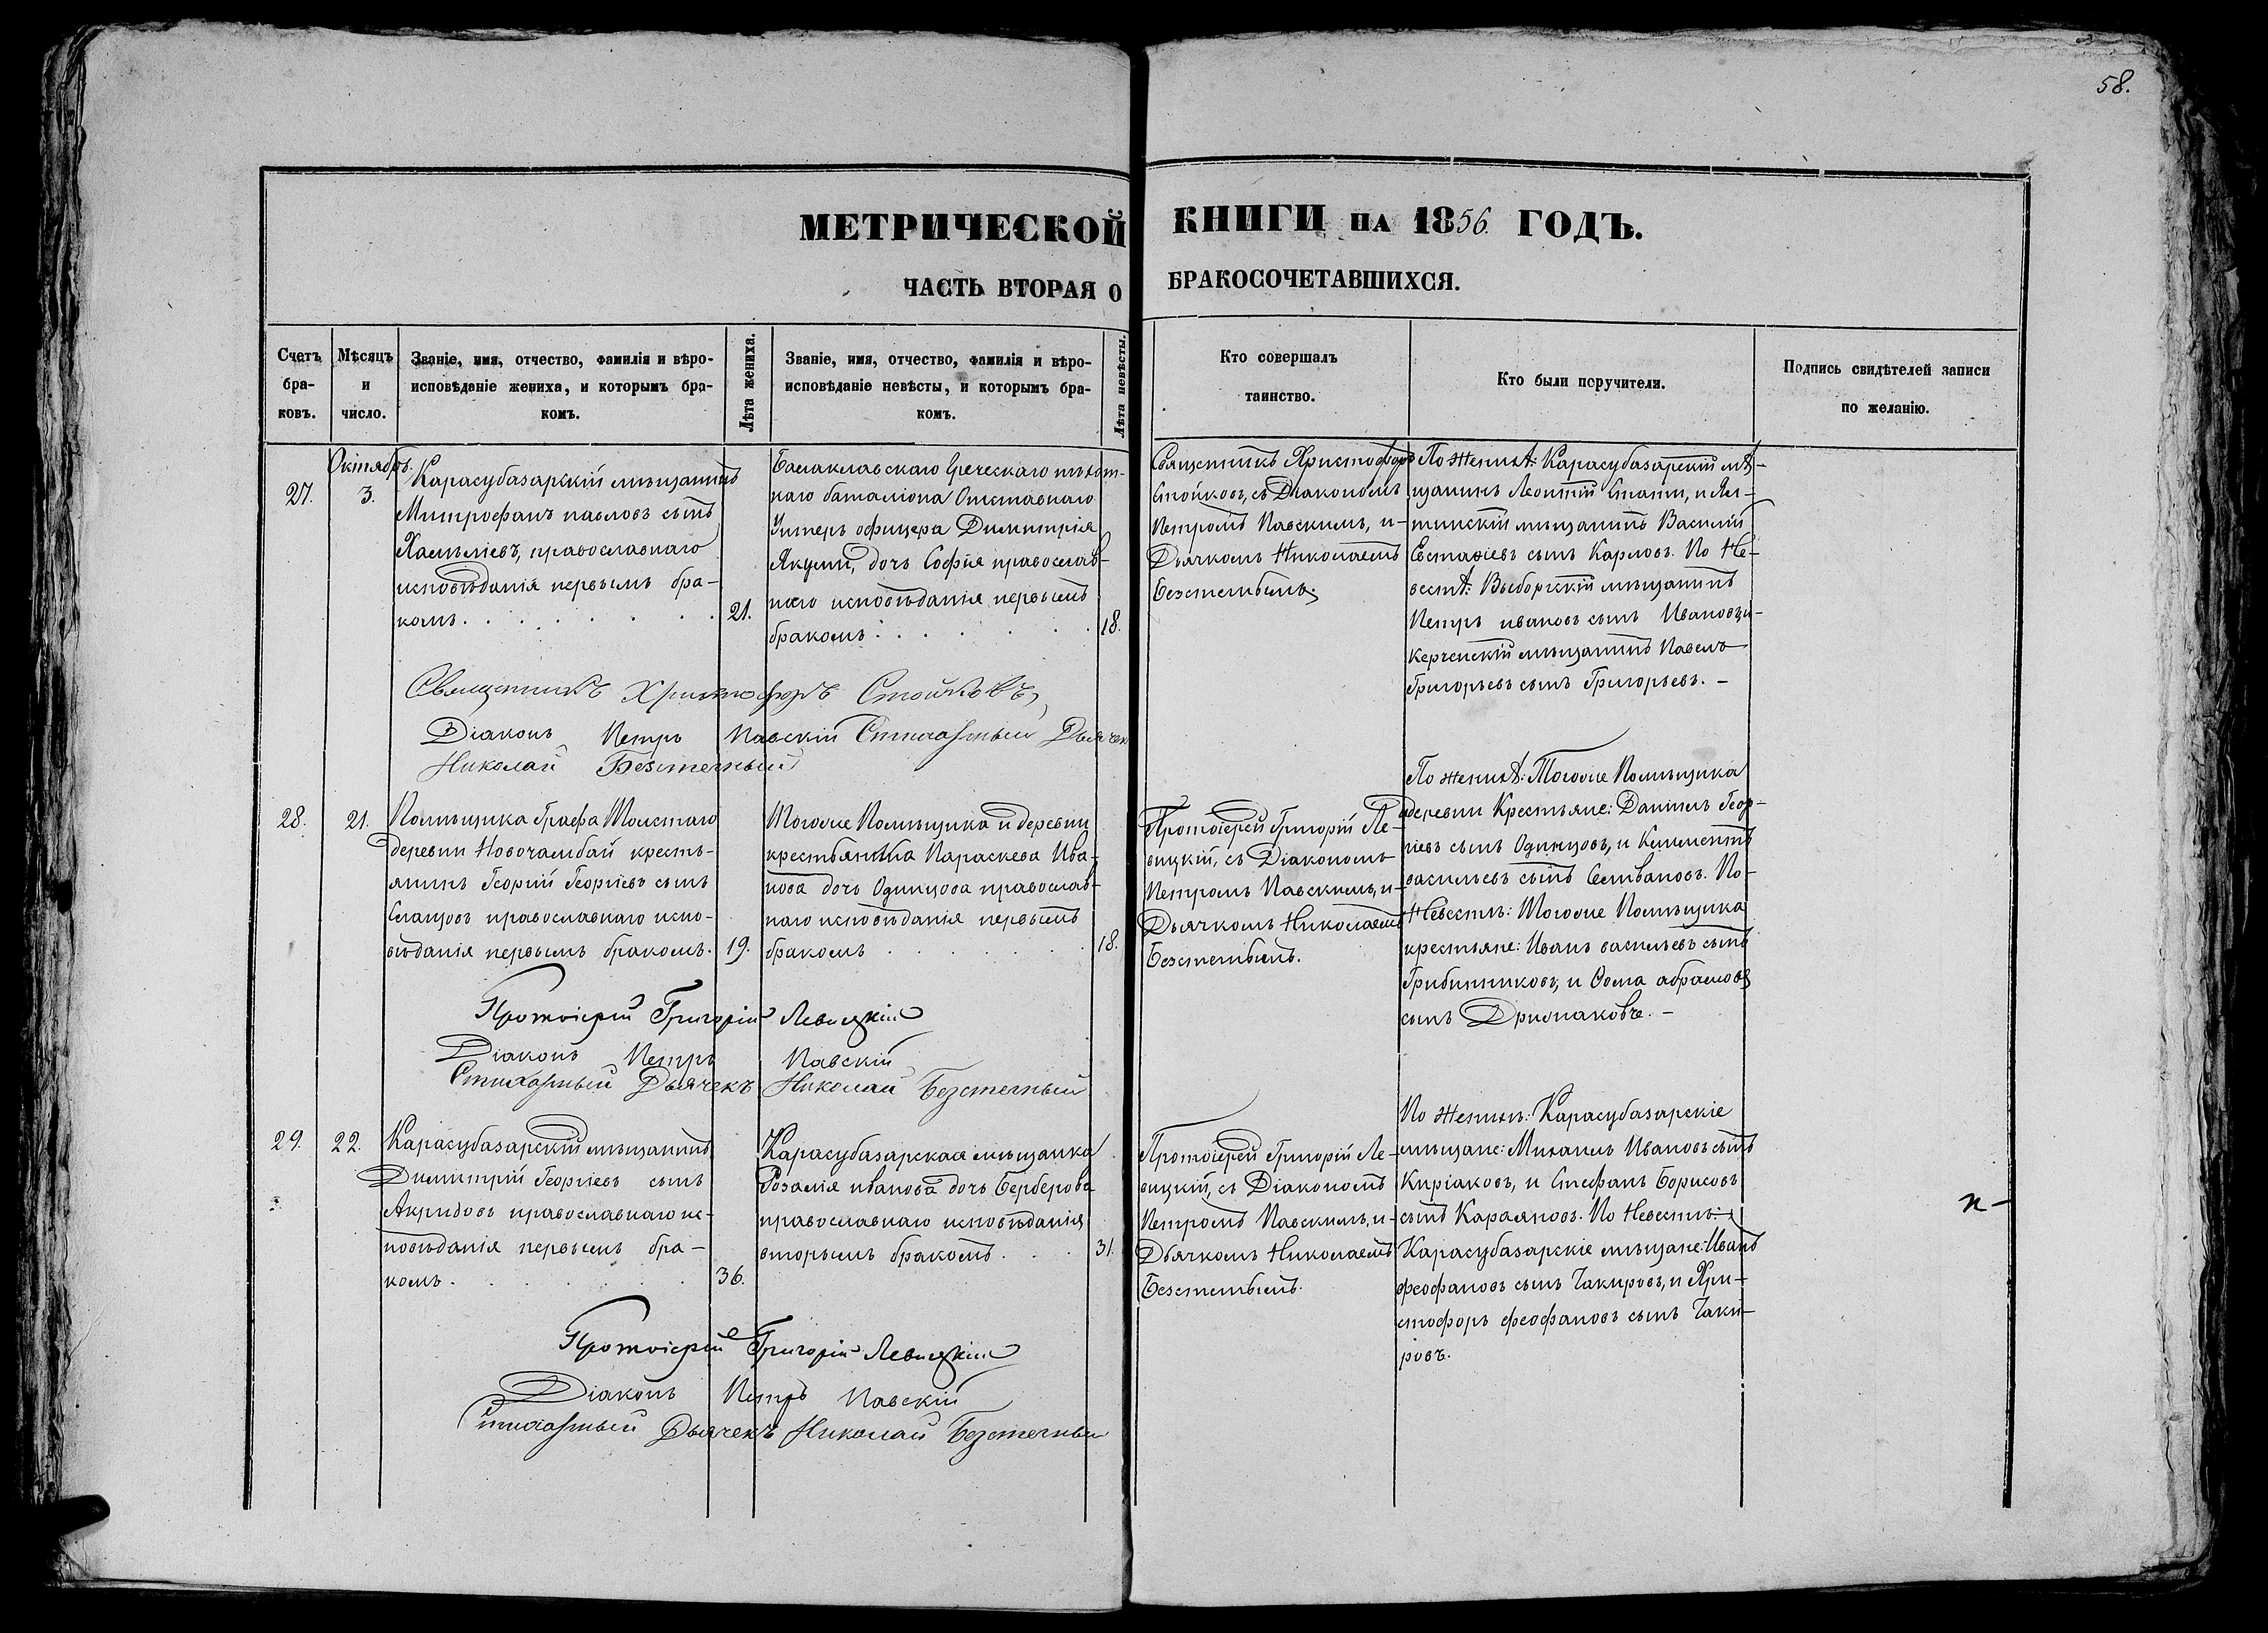 58.
МЕТРИЧЕСКОЙ КНИГИ НА 1856. ГОДЪ.
ЧАСТЬ ВТОРАЯ О БРАКОСОЧЕТАВШИХСЯ.
Счетъ
бра-
ковъ.
Мѣсяцъ
и
число.
Званіе, имя, отчество, фамилія и вѣро-
исповѣданіе жениха, и которымъ бра-
комъ.
Лѣта жениха.
Званіе, имя, отчество, фамилія и вѣро-
исповѣданіе невѣсты, и которымъ бра-
комъ.
Лѣта невѣсты.
Кто совершалъ
таинство.
Кто были поручители.
Подпись свидѣтелей записи
по желанію.
27.
Октябрь.
3.
Карасубазарскій мѣщанинъ
Митрофанъ павловъ сынъ
православнаго
исповѣданія первымъ бра-
комъ.
21.
Балаклавскаго Греческаго пѣхот-
наго баталіона Отставнаго
Унтеръ офицера Димитрія
Якуми, дочь Софія православ-
наго исповѣданія первымъ
бракомъ
18.
Священникъ Христофоръ
Стойковъ, съ Діакономъ
Петромъ Павскимъ, и-
Дьячкомъ Николаемъ
По женихѣ: Карасубазарскій мѣ-
щанинъ Леонтій и Ял-
тинскій мѣщанинъ Василій
Евстафіевъ сынъ Карловъ. По Не-
вестѣ: Выборгскій мѣщанинъ
Петръ ивановъ сынъ Ивановъ, и-
Керченскій мѣщанинъ Павелъ
Григорьевъ сынъ Григорьевъ. –
Священникъ Христофоръ Стойковъ,
Діаконъ Петръ Павскій Стихарный Дьячек
Николай
28.
21.
Помѣщика Графа Толстаго
деревни Новочамбай кресть-
янинъ Георгій Георгіевъ сынъ
православнаго испо-
вѣданія первымъ бракомъ.
19.
Тогоже Помѣщика и деревни
крестьянка Параскева Ива-
нова дочь Одинцова православ-
наго исповѣданія первымъ
бракомъ
18.
Протоіерей Григорій Ле-
вицкій, съ Діакономъ
Петромъ Павскимъ, и-
Дьячкомъ Николаемъ
По женихѣ: Тогоже Помѣщика
деревни Крестьяне: Даніилъ Геор-
гіевъ сынъ Одинцовъ, и Климентъ
васильевъ сынъ Селивановъ. По-
Невестѣ: Тогоже Помѣщика
крестьяне: Иванъ васильевъ сынъ
Грибинниковъ, и Ѳома абрамовъ
сынъ
Протоіерей Григорій Левицкій
Діаконъ Петръ Павскій
Стихарный Дьячекъ Николай
29.
22.
Карасубазарскій мѣщанинъ
Димитрій Георгіевъ сынъ
Акридовъ православнаго ис-
повѣданія первымъ бра-
комъ.
36.
Карасубазарская мѣщанка
Розалія иванова дочь Берберова
православнаго исповѣданія
вторымъ бракомъ.
31
Протоіерей Григорій Ле-
вицкій, съ Діакономъ
Петромъ Павскимъ, и-
Дьячкомъ Николаемъ
По женихѣ: Карасубазарскіе
мѣщане: Михаилъ Ивановъ сынъ
Киріаковъ, и Стефанъ Борисовъ
сынъ Караяновъ. По Невестѣ:
Карасубазарскіе мѣщане: Иванъ
феофановъ сынъ Чакировъ, и Хри-
стофоръ феофановъ сынъ Чаки-
ровъ.
Протоіерей Григорій Левицкій
Діаконъ Петръ Павскій
Стихарный Дьячекъ Николай